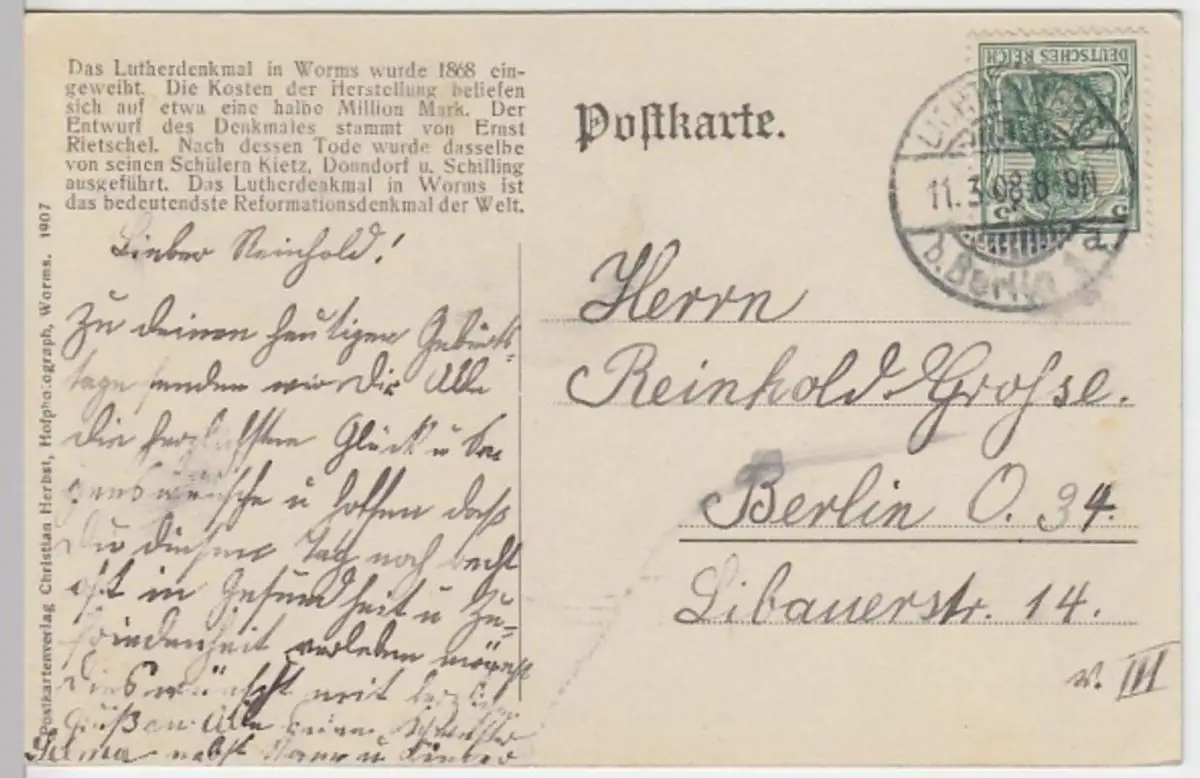 Das Lutherdenkmal in Worms wurde 1868 ein-
geweiht. Die Kosten der Herstellung beliefen
sich auf etwa eine halbe Million Mark. Der
Entwurf des Denkmales stammt von Ernst
Rietschel. Nach dessen Tode wurde dasselbe
von seinen Schülern Kietz, Donndorf u. Schilling
ausgeführt. Das Lutherdenkmal in Worms ist
das bedeutendste Reformationsdenkmal der Welt.
Postkartenverlag Christian Herbst, Hofphotograph, Worms. 1907
Lieber Reinhold!
Zu deinem heutigen Geburts-
tage senden wir Dir Alle
die herzlichsten Glück u Se-
genswünsche u hoffen daß
Du diesen Tag noch recht
oft in Gesundheit u Zu-
friedenheit verleben mögest
Dies wünscht mit herzlichen
Grüßen an Alle Deine Schwester
Selma nebst Mann u Kinder
Postkarte.
DEUTSCHES REICH
5 5
11.3.08.8-9N
b. Berlin 1 a.
Herrn
Reinhold Grosse.
Berlin O. 34.
Libauerstr. 14.
v. III